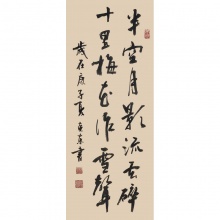 半空月影流云碎
十里梅花作雪聲
歲在庚子夏
書